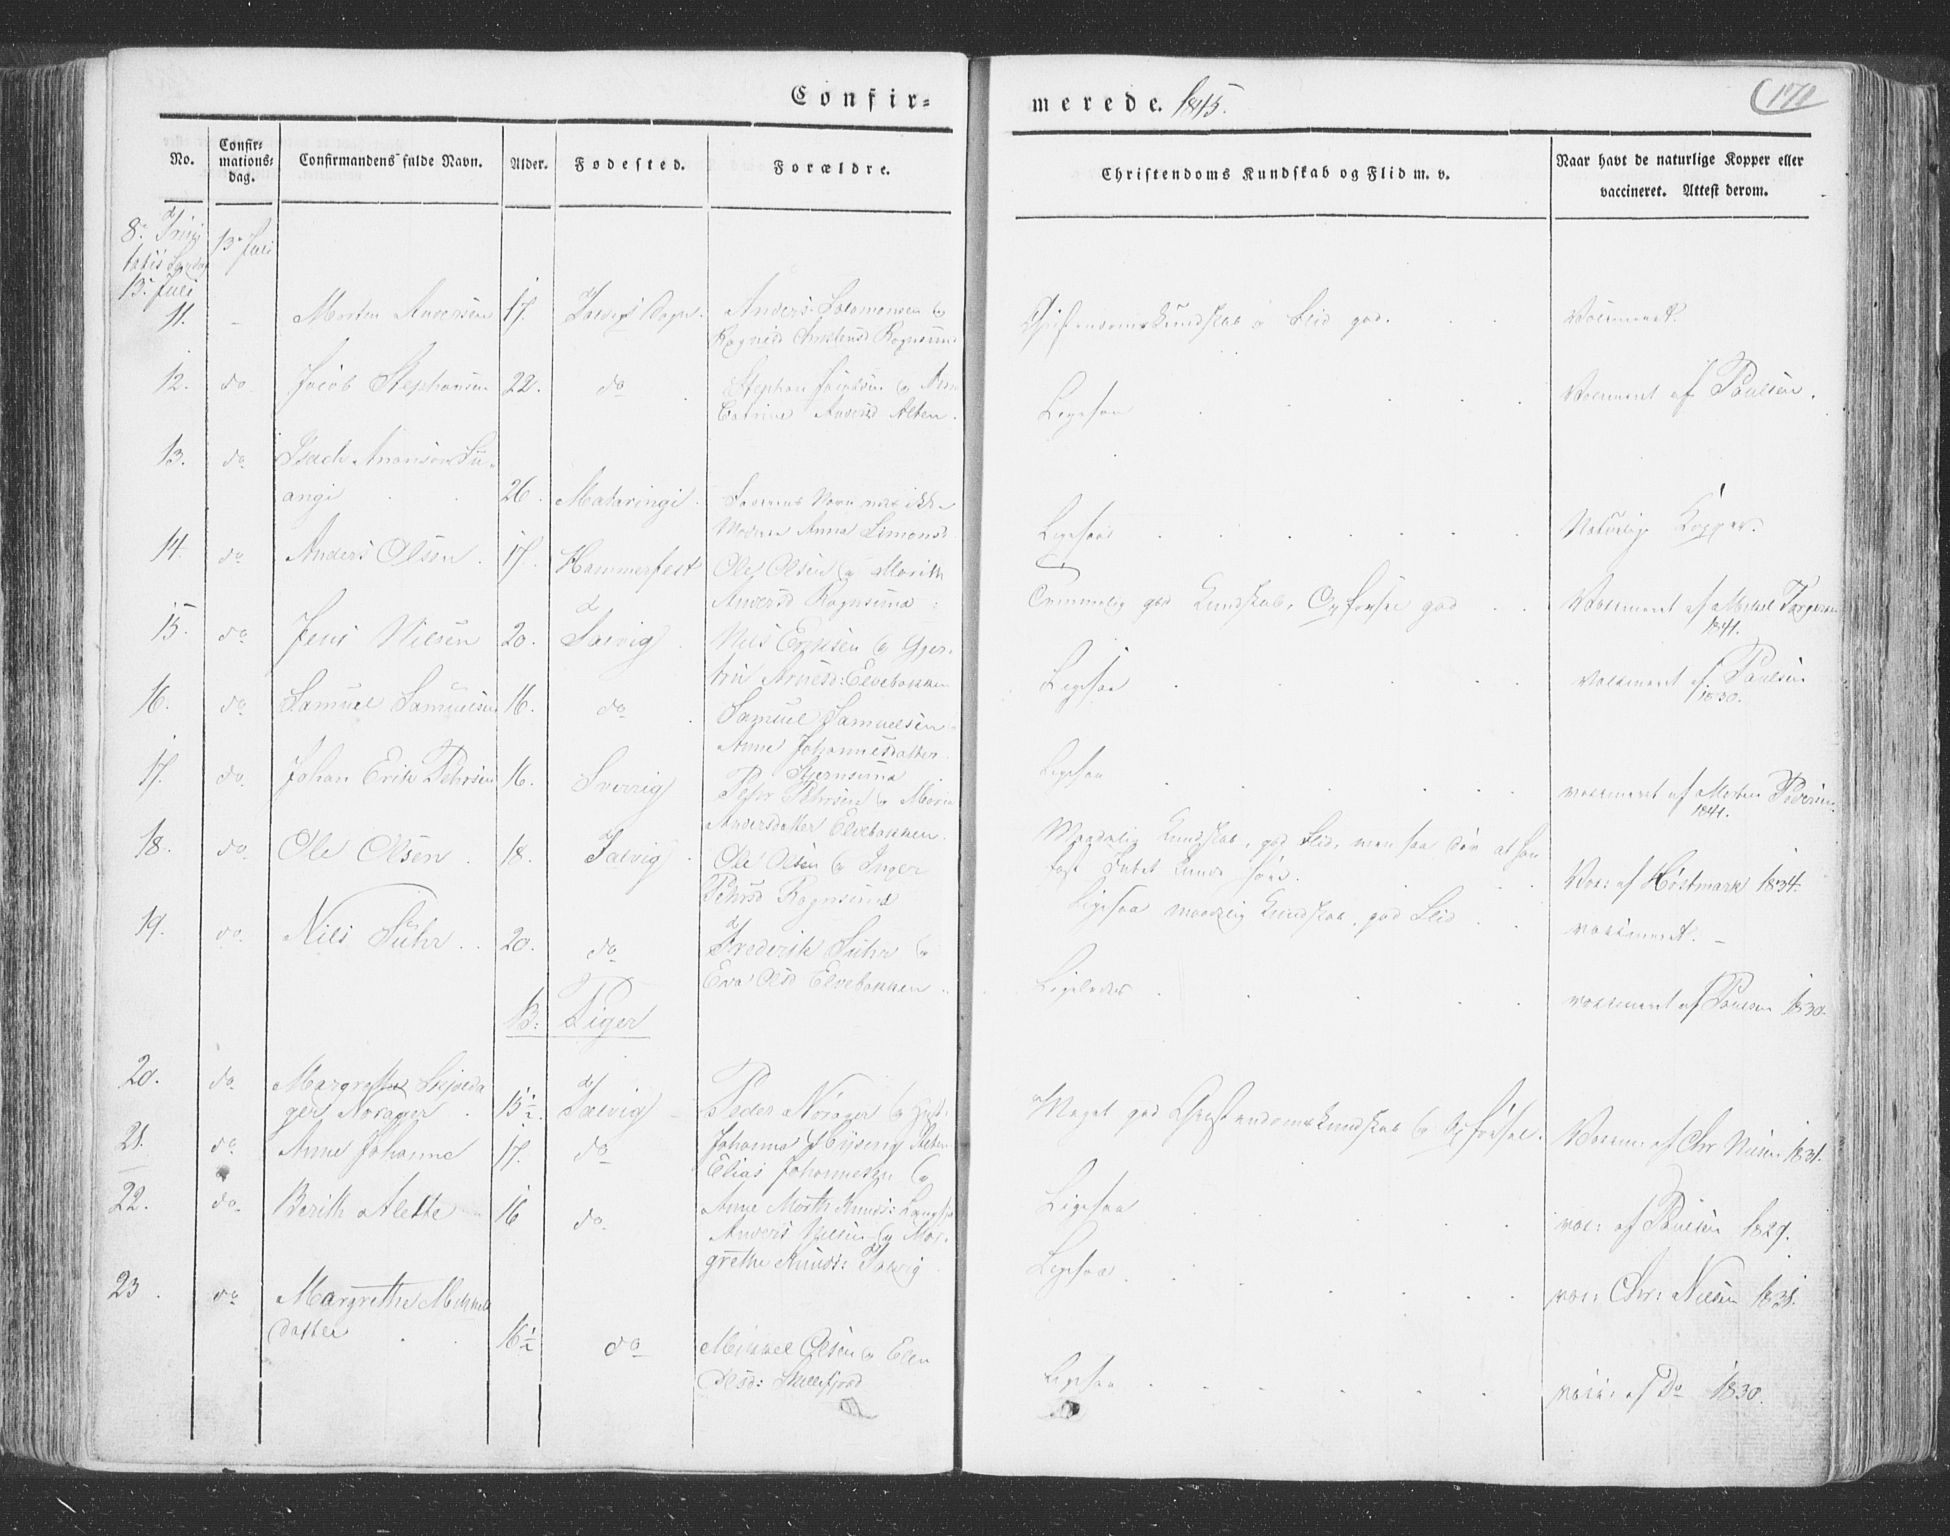 Confir=
merede. 1845.
170
No.
Confir=
mations=
dag.
Confirmandens fulde Navn.
Alder.
Fødested.
Forældre.
Christendoms Kundskab og Flid m. v.
Naar havt de naturlige Kopper eller
vaccineret. Attest derom.
8de Trini
tatis Søndag
13. Juli
13de Juli
11. Morten Andersen 17. Talvigs Anders Salomonsen og
Ragnsund
Christendomskundskab og Flid god. Vaccineret.
12. do Jacob Stephansen 22. do Stephan Jacobsen og
Catrine Andersd Alten.
Ligesaa Vaccineret af Paulsen.
13. do Isach Aronsen Su-
angi 26. Mataringi. Faderens Navn ikke
Moderen Anna Simonsd.
Ligesaa Naturlige Kopper.
14. do Anders Olsen 17. Hammerfest Ole Olsen og Marith
Andersd Ragnsund
Temmelig god Kundskab, Opførsel god Vaccineret af Mikel
1841.
15. do Jens Nilsen 20. Talvig Nils Eriksen og Gjer-
tru Arnesd: Elvebakken
Ligesaa Vaccineret af Paulsen
1830.
16. do Samuel Samuelsen 16. do Samuel Samuelsen
Anne Johannesdatter
Stjernsund
Ligesaa vaccineret af Morten Pedersen
1841.
17. do Johan Erik Pehrsen 16. Sverrig Pehr Pehrsen og Maria
Andersdatter Elvebakken.
Maadelig Kundskab, god Flid, men saa døv at han
fast Intet kunde høre. Vac: af Høstmark 1834.
18. do Ole Olsen 18. Talvig Ole Olsen og Inger
Pehrsd Ragnsund
Ligesaa maadelig Kundskab, god Flid vaccineret.
19. do Niels Suhr 20. do Frederik Suhr og
Eva Olsd Elvebakken
Ligeledes vaccineret af Paulsen 1830.
B: Piger
20. do Margrethe Skjelda
ger Norager 15½ Talvig Peder Norager og
Johanna
Meget god Christendomskundskab og Opførsel. Vaccin: af Chr Nilsen 1831.
21. do Anne Johanne 17. do Elias Johannesen og
Anne Marth Knuds:
Ligesaa vac: af Paulsen 1829.
22. do Berith Alette 16 do Anders Nilsen og Mar-
grethe Knuds: Talvig
Ligesaa vac: Chr: Nilsen 1831.
23. do Margrethe Mikkels
datter 16½ do Mikkel Olsen og Elen
Olsd: Skillefjord
Ligesaa vacc: af Do 1830.